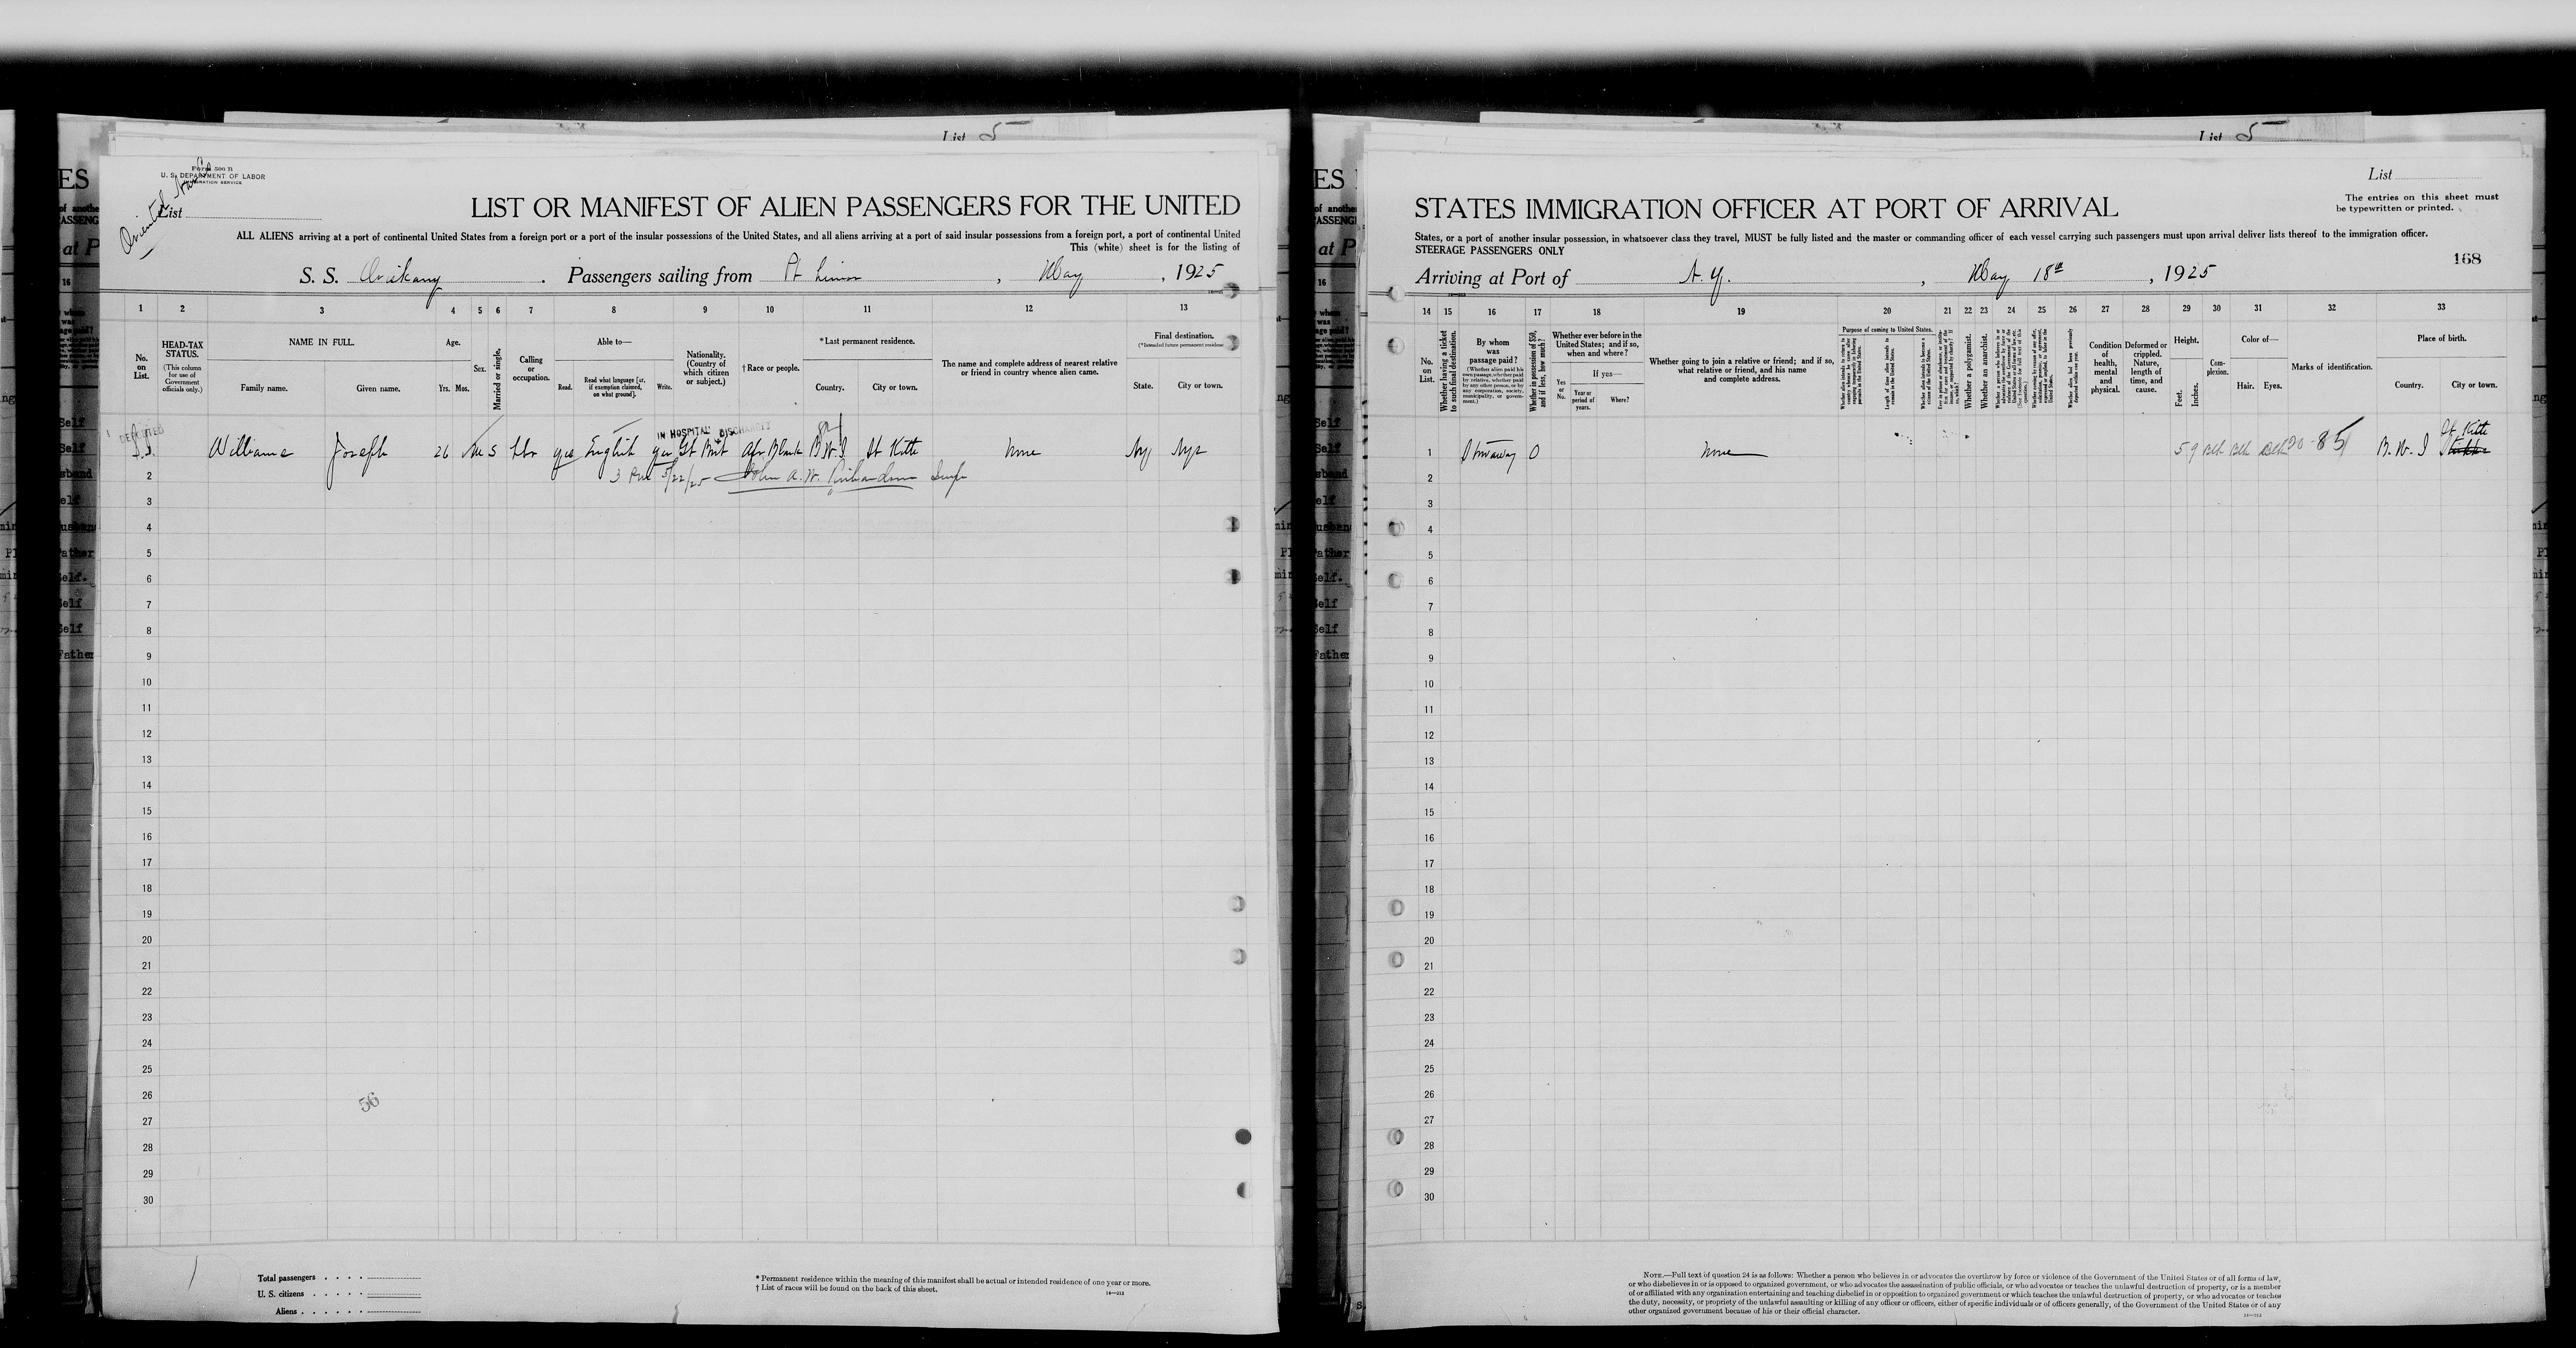 List 5
Form 500 B
U. S. DEPARTMENT OF LABOR
IMMIGRATION SERVICE
List
LIST OR MANIFEST OF ALIEN PASSENGERS FOR THE UNITED
ALL ALIENS arriving at a port of continental United States from a foreign port or a port of the insular possessions of the United States, and all aliens arriving at a port of said insular possessions from a foreign port, a port of continental United
This (white) sheet is for the listing of
S. S. Passengers sailing from Pt Limon, May, 1925
1 2 3 4 5 6 7 8 9 10 11 12 13
No. on List.
HEAD-TAX STATUS.
(This column for use of Government officials only.)
NAME IN FULL.
Family name. Given name.
Age.
Yrs. Mos.
Sex.
Married or single.
Calling or occupation.
Able to—
Read. Read what language [or, if exemption claimed, on what ground]. Write.
Nationality. (Country of which citizen or subject.)
† Race or people.
*Last permanent residence.
Country. City or town.
The name and complete address of nearest relative or friend in country whence alien came.
Final destination.
(*Intended future permanent residence)
State. City or town.
DEPORTED
IN HOSPITAL DISCHARGED
1 Williams Joseph 26 M S Lbr yes English yes Gt Brit Afr. Black B.W.I St Kitts None Ny Nyc
2 5/22/25 John A. W. Richardson
3
4
5
6
7
8
9
10
11
12
13
14
15
16
17
18
19
20
21
22
23
24
25
26
27
28
29
30
56
Total passengers
U. S. citizens
Aliens
* Permanent residence within the meaning of this manifest shall be actual or intended residence of one year or more.
† List of races will be found on the back of this sheet.
List 5
List
The entries on this sheet must
be typewritten or printed.
STATES IMMIGRATION OFFICER AT PORT OF ARRIVAL
States, or a port of another insular possession, in whatsoever class they travel, MUST be fully listed and the master or commanding officer of each vessel carrying such passengers must upon arrival deliver lists thereof to the immigration officer.
STEERAGE PASSENGERS ONLY
168
Arriving at Port of N. Y., May 18th, 1925
14 15 16 17 18 19 20 21 22 23 24 25 26 27 28 29 30 31 32 33
No. on List.
Whether having a ticket to such final destination.
By whom was passage paid?
(Whether alien paid his own passage, whether paid by relative, whether paid by any other person, or by any corporation, society, municipality, or government.)
Whether in possession of $50, and if less, how much?
Whether ever before in the United States; and if so, when and where?
Yes or No.
If yes—
Year or period of years. Where?
Whether going to join a relative or friend; and if so, what relative or friend, and his name and complete address.
Purpose of coming to United States.
Whether a polygamist.
Whether an anarchist.
Condition of health, mental and physical.
Deformed or crippled. Nature, length of time, and cause.
Height.
Feet. Inches.
Complexion.
Color of—
Hair. Eyes.
Marks of identification.
Place of birth.
Country. City or town.
1 Stowaway 0 None 5 9 Blk Blk Blk B. W. I St Kitts
2
3
4
5
6
7
8
9
10
11
12
13
14
15
16
17
18
19
20
21
22
23
24
25
26
27
28
29
30
NOTE.—Full text of question 24 is as follows: Whether a person who believes in or advocates the overthrow by force or violence of the Government of the United States or of all forms of law,
or who disbelieves in or is opposed to organized government, or who advocates the assassination of public officials, or who advocates or teaches the unlawful destruction of property, or is a member
of or affiliated with any organization entertaining and teaching disbelief in or opposition to organized government or which teaches the unlawful destruction of property, or who advocates or teaches
the duty, necessity, or propriety of the unlawful assaulting or killing of any officer or officers, either of specific individuals or of officers generally, of the Government of the United States or of any
other organized government because of his or their official character.